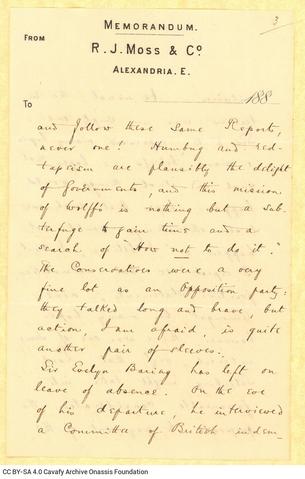 3
MEMORANDUM.
FROM
R. J. MOSS & Co.
ALEXANDRIA. E.
TO
188
and follow these same Reports,
never one! Humbug and red-
tapeism are plausibly the delight
of Governments, and this mission
of Wolff's is nothing but a sub-
terfuge to gain time and a
search of "How not to do it."
The Conservatives were a very
fine lot as an Opposition party:
they talked long and brave, but
action, I am afraid, is quite
another pair of sleeves.
Sir Evelyn Baring has left on
leave of absence. On the eve
of his departure, he interviewed
a Committee of British indem-
CC BY-SA 4.0 Cavafy Archive Onassis Foundation